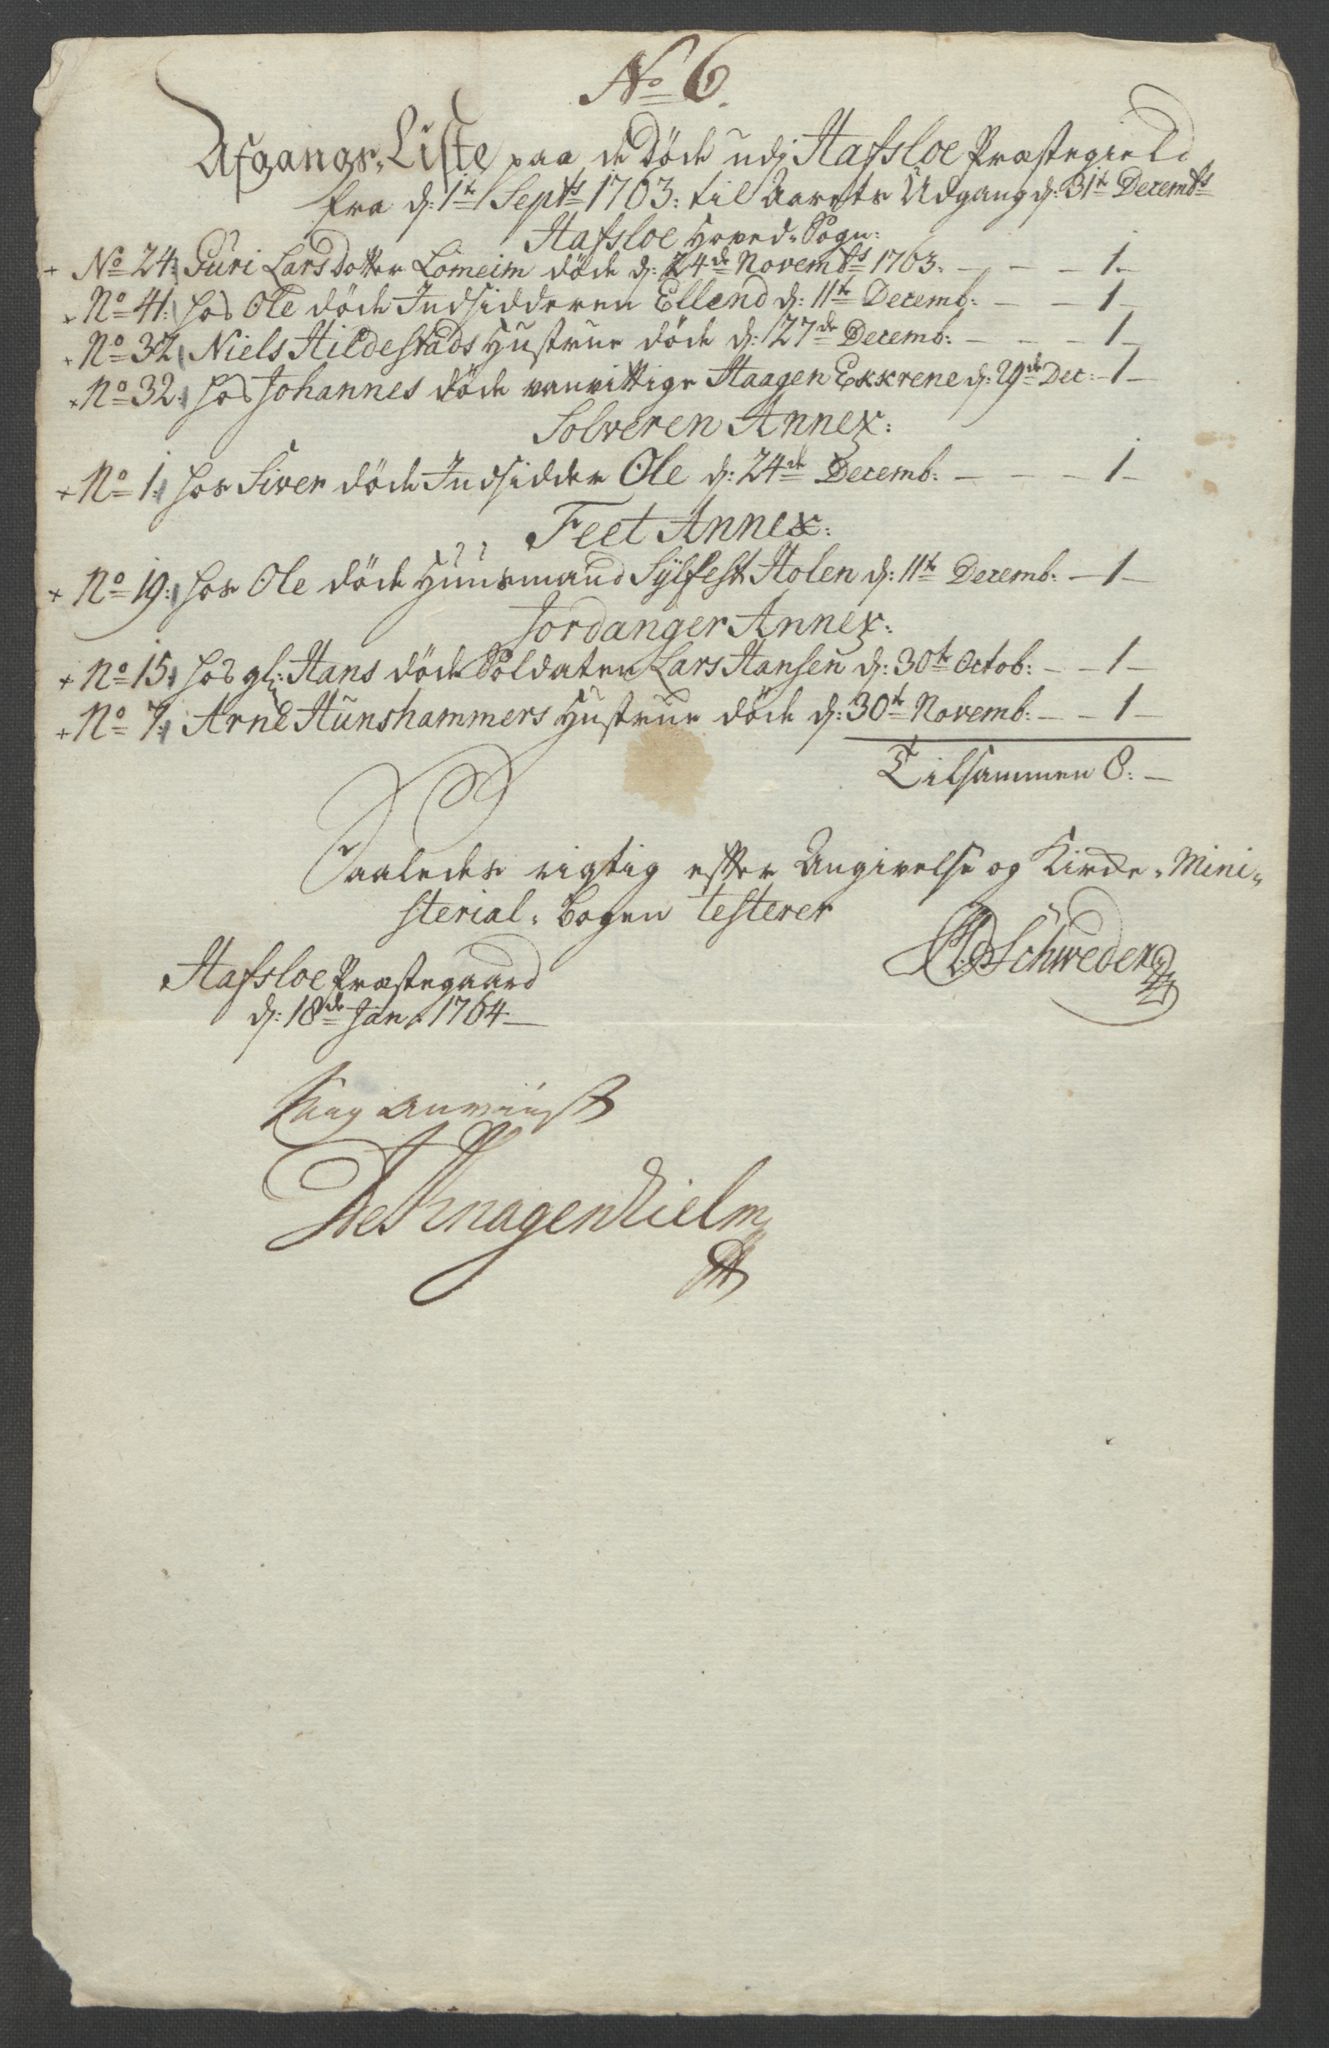 No 6.
Afgangs-Liste paa de Døde udj Hafsloe Præstegield
fra d: 1te Septbs 1763: til Aarets Udgang d: 31te Decembs
Hafsloe Hoved-Sogn:
+ No 24: Guri LarsDotter Lomeim døde d: 24de Novembs 1763. - - - 1.-
+ No 41: hos Ole døde Indsidderen Ellend d: 11te Decemb: - - - 1-
+ No 32 Niels Hildestads Hustrue døde d: 27de Decemb: - - - 1-
+ No 32: hos Johannes døde vanvittige Haagen Ekkrene d: 29de Dec: -1-
Solveren Annex:
+ No 1: hos Siver døde Indsidder Ole d: 24de Decemb: - - - 1-
Feet Annex:
+ No 19: hos Ole døde Huusmand Sylfest Holen d: 11te Decemb: -1-
Jordanger Annex:
+ No 15: hos gl: Hans døde Soldaten Lars Hansen d: 30te Octob: - - 1-
+ No 7: Arne Hunshammers Hustrue døde d: 30te Novemb: - - 1-
Tilsammen 8: -
Saaledes rigtig efter Angivelse og Kirke-Mini-
sterial-Bogen testerer
Schweder
Hafsloe Præstegaard
d: 18de Jan: 1764. -
De Knagenhielm